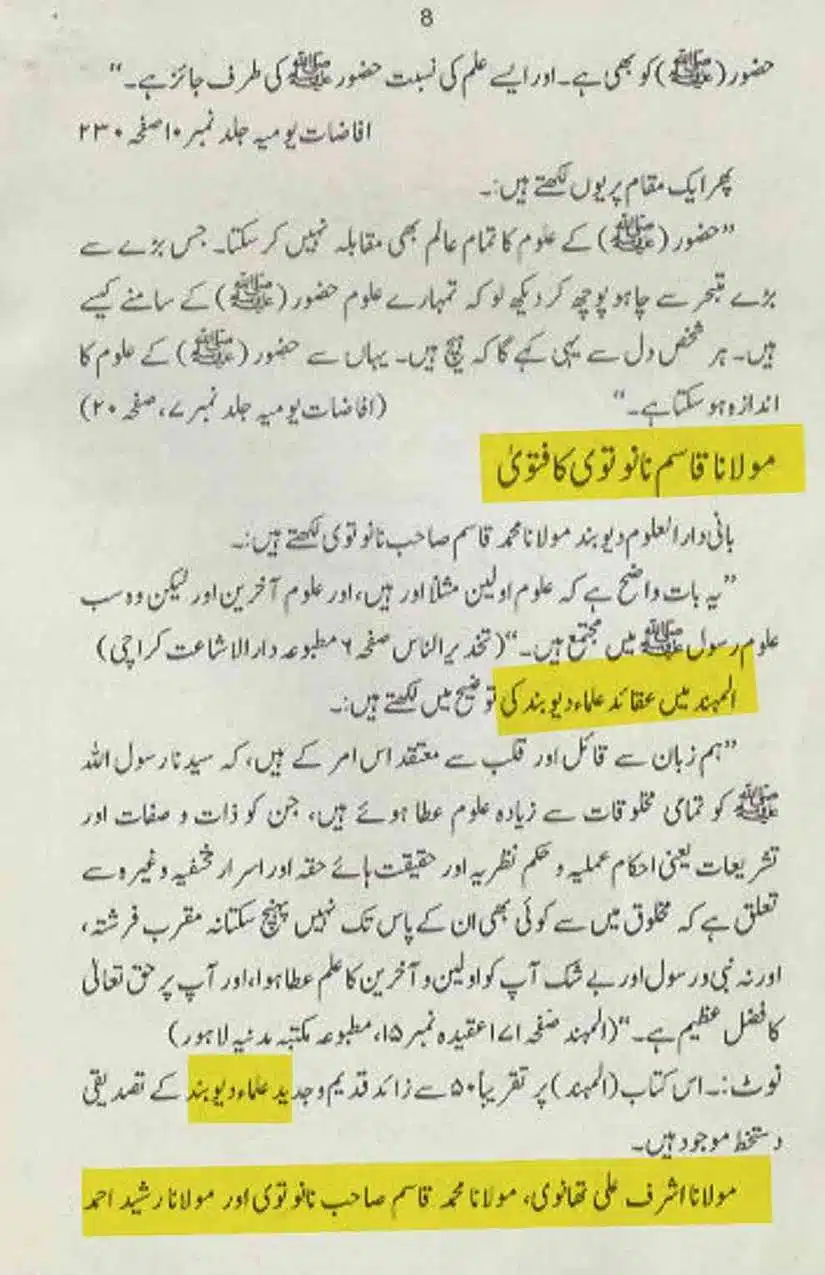 8
حضور (ﷺ) کو بھی ہے۔ اور ایسے علم کی نسبت حضور ﷺ کی طرف جائز ہے۔“
افاضات یومیہ جلد نمبر ۱۰ صفحہ ۲۳۰
پھر ایک مقام پر یوں لکھتے ہیں:۔
”حضور (ﷺ) کے علوم کا تمام عالم بھی مقابلہ نہیں کر سکتا۔ جس بڑے سے
بڑے متبحر سے چاہو پوچھ کر دیکھ لو کہ تمہارے علوم حضور (ﷺ) کے سامنے کیسے
ہیں۔ ہر شخص دل سے یہی کہے گا کہ ہیچ ہیں۔ یہاں سے حضور (ﷺ) کے علوم کا
اندازہ ہو سکتا ہے۔“ (افاضات یومیہ جلد نمبر ۷، صفحہ ۲۰)
مولانا قاسم نانوتوی کا فتویٰ
بانی دار العلوم دیوبند مولانا محمد قاسم صاحب نانوتوی لکھتے ہیں:۔
”یہ بات واضح ہے کہ علوم اولین مثلاً اور ہیں، اور علوم آخرین اور لیکن وہ سب
علوم رسول ﷺ میں مجتمع ہیں۔“ (تحذیر الناس صفحہ ۶ مطبوعہ دار الاشاعت کراچی)
المہند میں عقائد علماء دیوبند کی توضیح میں لکھتے ہیں:۔
”ہم زبان سے قائل اور قلب سے معتقد اس امر کے ہیں، کہ سیدنا رسول اللہ
ﷺ کو تمامی مخلوقات سے زیادہ علوم عطا ہوئے ہیں، جن کو ذات و صفات اور
تشریعات یعنی احکام عملیہ و حکم نظریہ اور حقیقت ہائے حقہ اور اسرار مخفیہ وغیرہ سے
تعلق ہے کہ مخلوق میں سے کوئی بھی ان کے پاس تک نہیں پہنچ سکتا نہ مقرب فرشتہ،
اور نہ نبی و رسول اور بے شک آپ کو اولین و آخرین کا علم عطا ہوا، اور آپ پر حق تعالٰی
کا فضل عظیم ہے۔“ (المہند صفحہ ۱۷۱ عقیدہ نمبر ۱۵، مطبوعہ مکتبہ مدنیہ لاہور)
نوٹ:۔ اس کتاب (المہند) پر تقریباً ۵۰ سے زائد قدیم و جدید علماء دیوبند کے تصدیقی
دستخط موجود ہیں۔
مولانا اشرف علی تھانوی، مولانا محمد قاسم صاحب نانوتوی اور مولانا رشید احمد